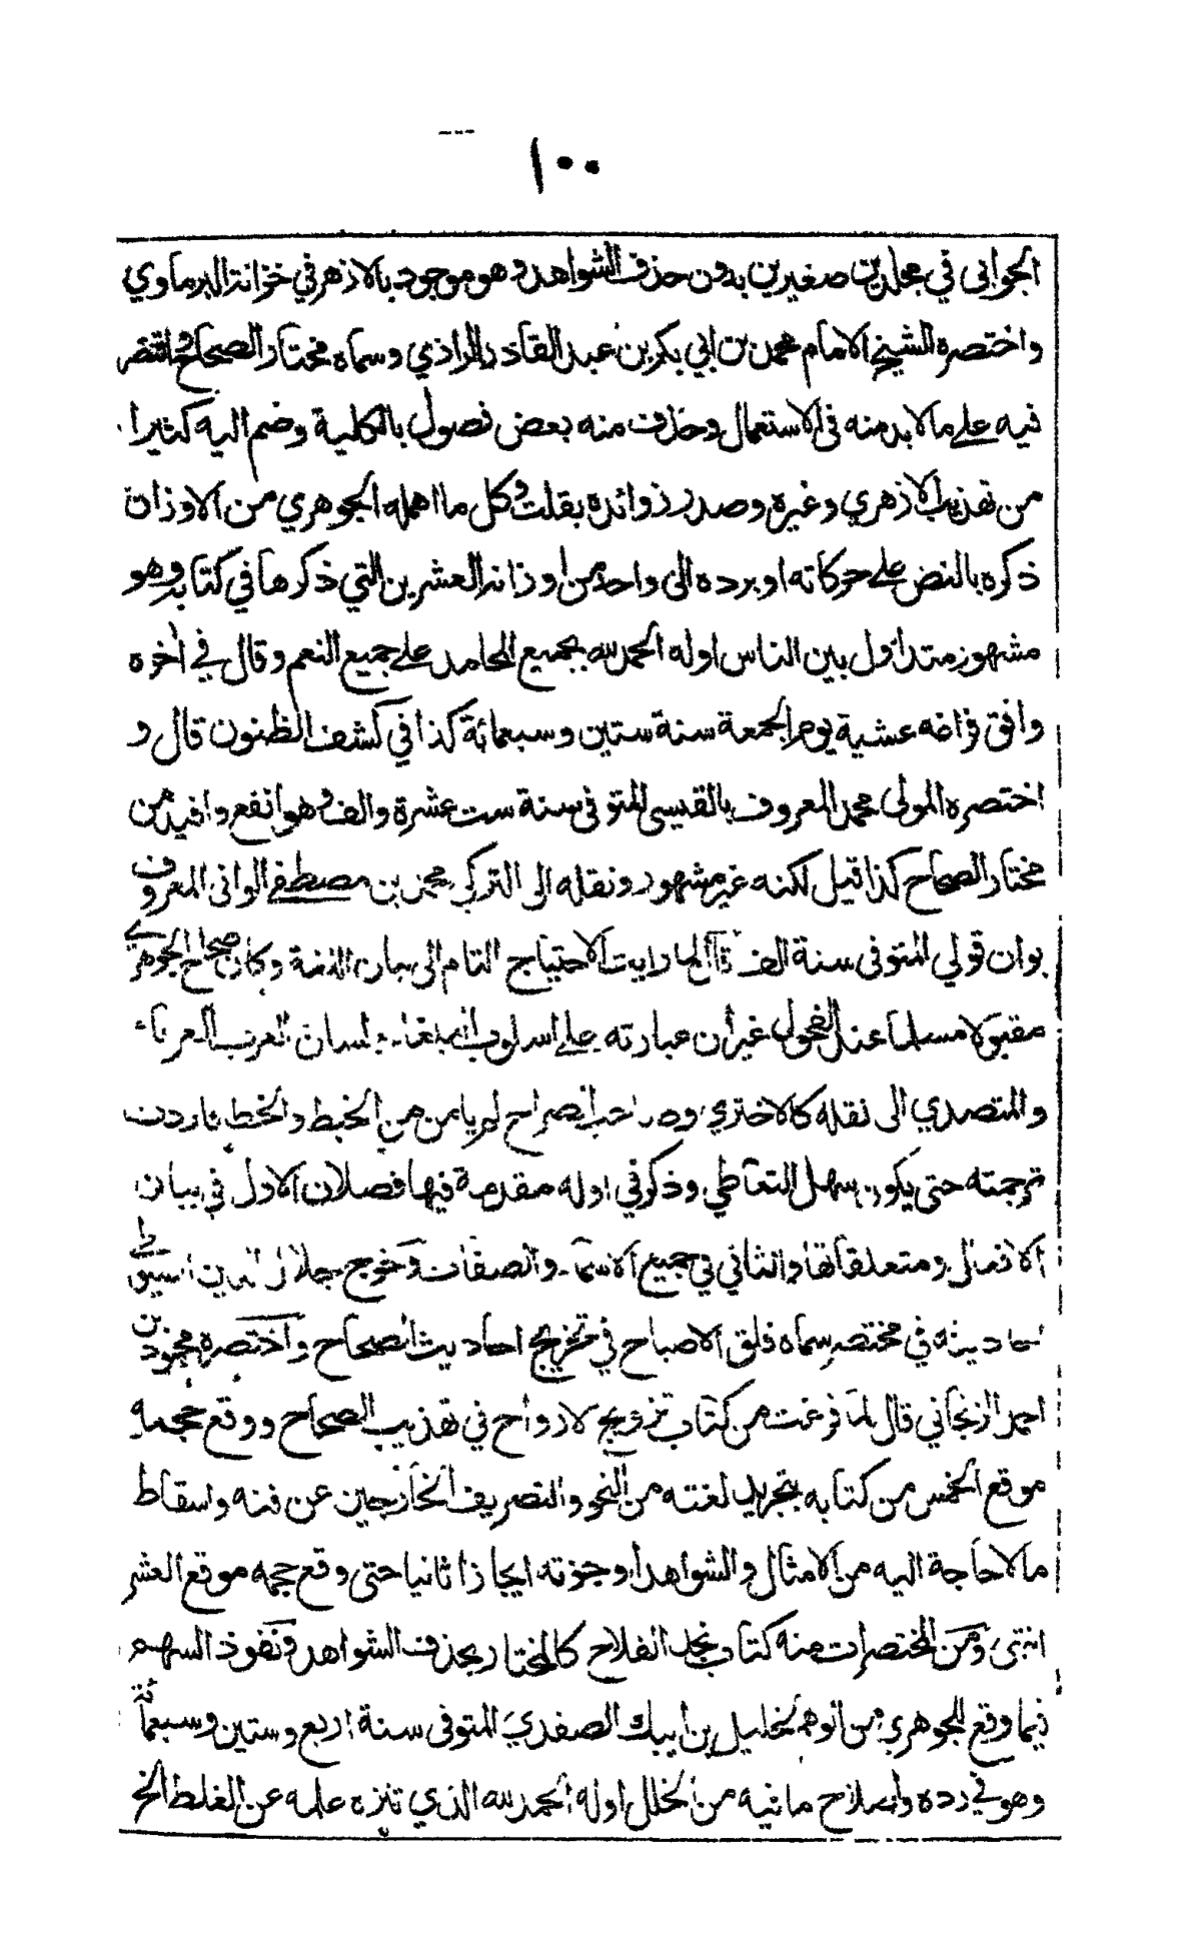 ١٠٠
الجوابى في مجلدين صغيرين بدون حذف الشواهد وهو موجود بالازهر في خزانة البرماوي
واختصره الشيخ الامام محمد بن ابي بكر بن عبد القادر الرازي وسماه مختار الصحاح واقتصر
فيه على ما لا بد منه في الاستعمال وحذف منه بعض فصول بالكلية وضم اليه كثيرا
من تهذيب الازهري وغيره وصدر زوائده بقلت وكل ما اهمله الجوهري من الاوزان
ذكره بالنص على حركاته او برده الى واحد من اوزانه العشرين التي ذكرها في كتابه وهو
مشهور متداول بين الناس اوله الحمد لله بجميع المحامد على جميع النعم وقال في اخره
وافق فراغه عشية يوم الجمعة سنة ستين وسبعمائة كذا في كشف الظنون قال و
اختصره المولى محمد المعروف بالقيسى المتوفى سنة ست عشرة والف وهو انفع وافيد من
مختار الصحاح كذا قيل لكنه غير مشهور ونقله الى التركي محمد بن مصطفى الوانى المعروف
بوان قولي المتوفى سنة الف قال لما رايت الاحتياج التام الى بيان اللغة وكان صحاح الجوهري
مقبولا مسلما عند الفحول غير أن عبارته على اسلوب البلغاء بلسان العرب العرباء
والمتصدي الى نقله كالاختري وصاحب الصراح لم يامن من الخبط والخطا فاردت
ترجمته حتى يكون سهل التعاطي وذكر في اوله مقدمة فيها فصلان الاول في بيان
الافعال ومتعلقاتها والثاني في جميع الاسماء والصفات وخرج جلال الدين السيوطي
احاديثه في مختصر سماه فلق الاصباح في تخريج احاديث الصحاح واختصره محمود بن
احمد الزنجاني قال لما فرغت من كتاب ترويح الارواح في تهذيب الصحاح ووقع حجمه
موقع الخمس من كتابه بتجريد لغته من النحو والتصريف الخارجين عن فنه واسقاط
ما لا حاجة اليه من الامثال والشواهد اوجزته ايجازا ثانيا حتى وقع حجمه موقع العشر
انتهى ومن المختصرات منه كتاب نجد الفلاح كالمختار بحذف الشواهد ونفوذ السهم
فيما وقع للجوهري من الوهم لخليل بن ايبك الصفدي المتوفى سنة اربع وستين وسبعمائة
وهو في رده واصلاح ما فيه من الخلل اوله الحمد لله الذي تنزه علمه عن الغلط الخ